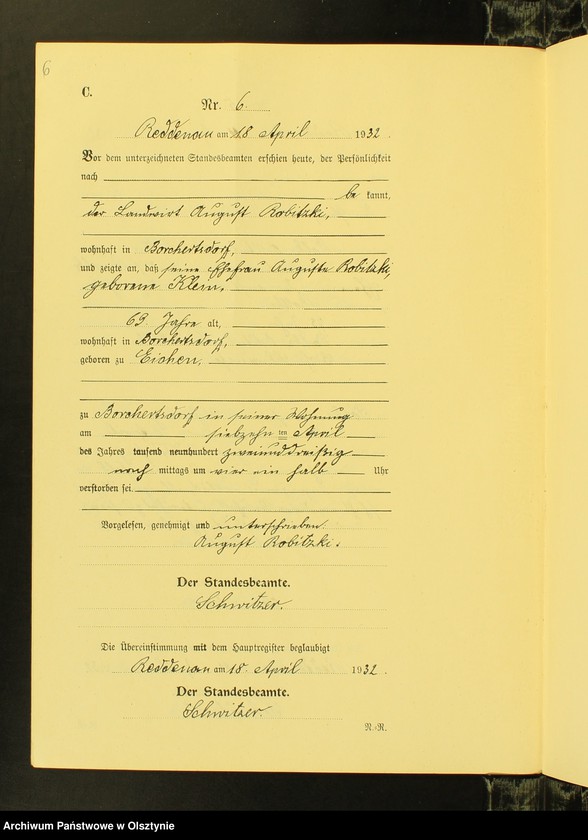 6
C.
Nr. 6.
Reddenau am 18 April 1932.
Vor dem unterzeichneten Standesbeamten erschien heute, der Persönlichkeit
nach
be kannt,
der Landwirt August Robitzki,
wohnhaft in Borchertsdorf,
und zeigte an, daß seine Ehefrau Auguste Robitzki,
geborene Klein,
63 Jahre alt,
wohnhaft in Borchertsdorf,
geboren zu Eichen,
zu Borchertsdorf in seiner Wohnung
am siebzehn ten April
des Jahres tausend neunhundert zweiunddreißig
nach mittags um vier ein halb Uhr
verstorben sei.
Vorgelesen, genehmigt und unterschrieben.
August Robitzki.
Der Standesbeamte.
Schwitzer.
Die Übereinstimmung mit dem Hauptregister beglaubigt
Reddenau am 18. April 1932.
Der Standesbeamte.
Schwitzer.
N.-R.
Archiwum Państwowe w Olsztynie